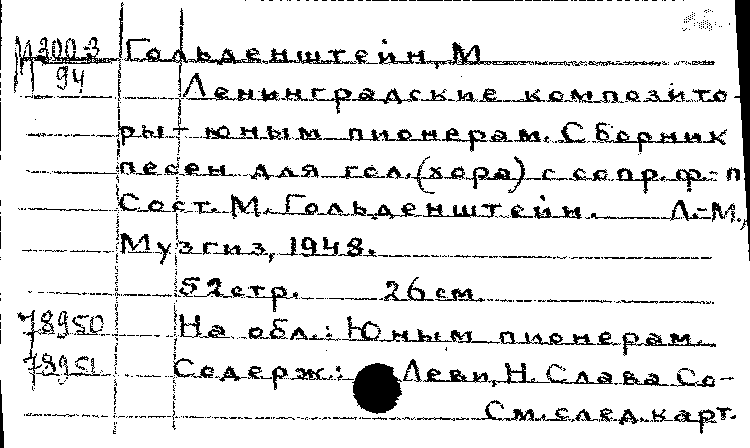 М 300-3 Гольденштейн, М
94
Ленинградские композито-
ры - юным пионерам. Сборник
песен для гол. (хора) с сопр. ф.-п
Сост. М. Гольденштейн. Л.-М.,
Музгиз, 1948.
52 стр. 26 см.
78950 На обл.: Юным пионерам.
78951 Содерж.: Леви, Н. Слава Со-
См. след. карт.